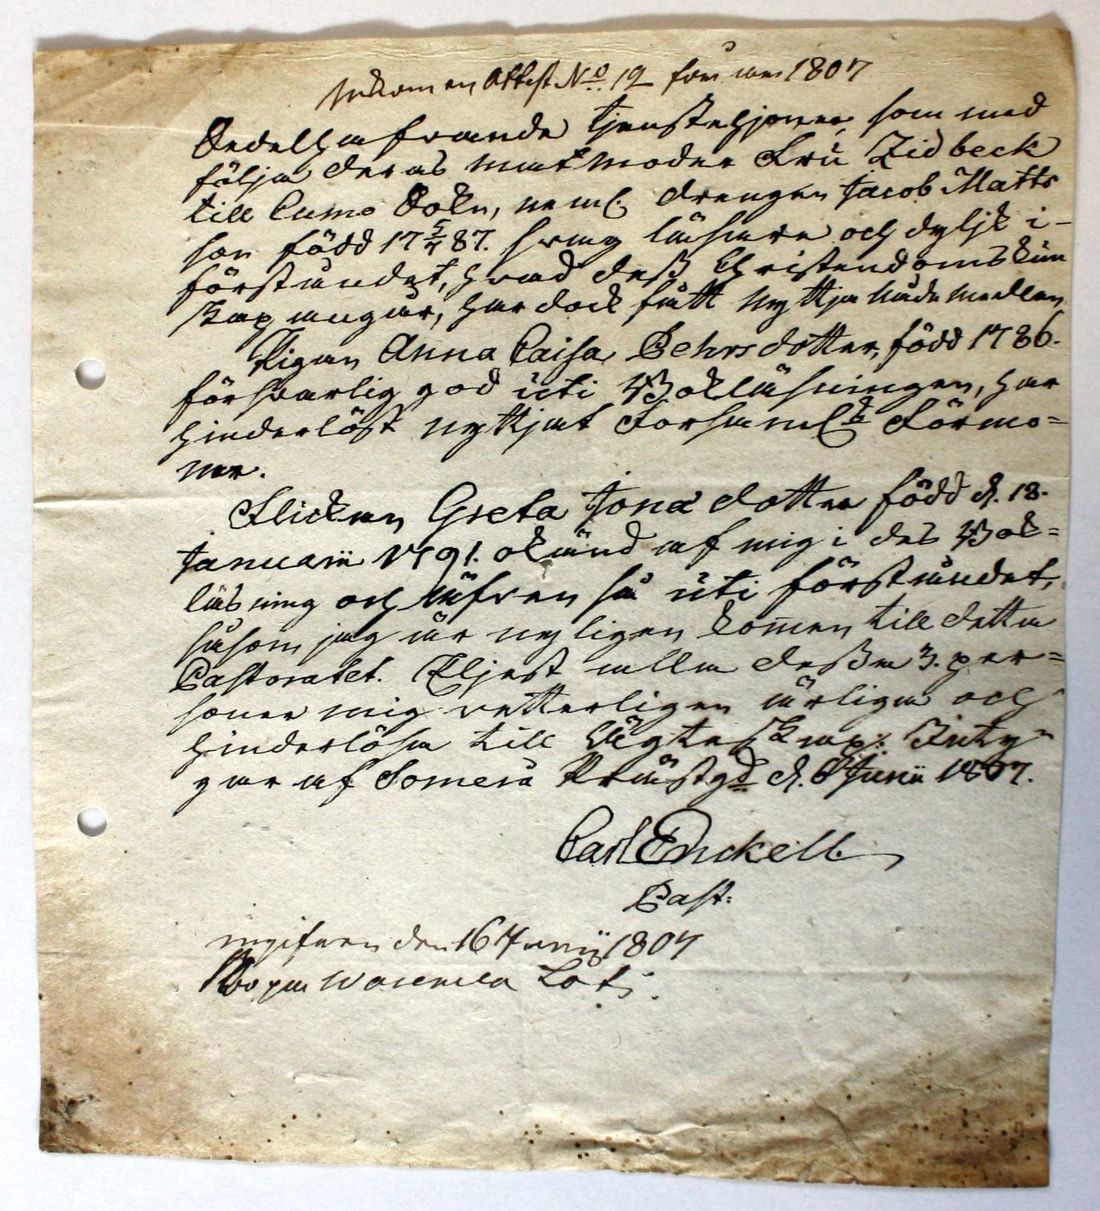 Inkommen Attest No 12 för år 1807
Bedelhafvande tjensteHjoner, som med
följa deras matmoder Fru Zidbeck
till Cumo Sokn, neml. drengen Jacob Matts
son född 17 5/4 87. svag läsare och dylik i
förståndet, hvad dess Christendoms kün
skap angår, har dock fått nyttja nådemedlen
Pigan Anna Caisa Pehrsdotter, född 1786.
försvarlig god üti Bokläsningen, har
hinderlöst nyttjat Församlds Förmo=
ner.
Flickan Greta Jonædotter född d. 18.
Januarii 1791. okänd af mig i des Bok=
läsning och äfven så üti förståndet,
såsom jag är nyligen kommen till detta
Pastoratet. Eljest alla dessa 3. per=
soner mig vetterligen ärliga och
hinderlösa till Ägteskap; Inty=
gar af Somerü Prästgd d. 8 Junii 1807.
Carl Enckell.
Past:
ingifven den 16 Junij 1807